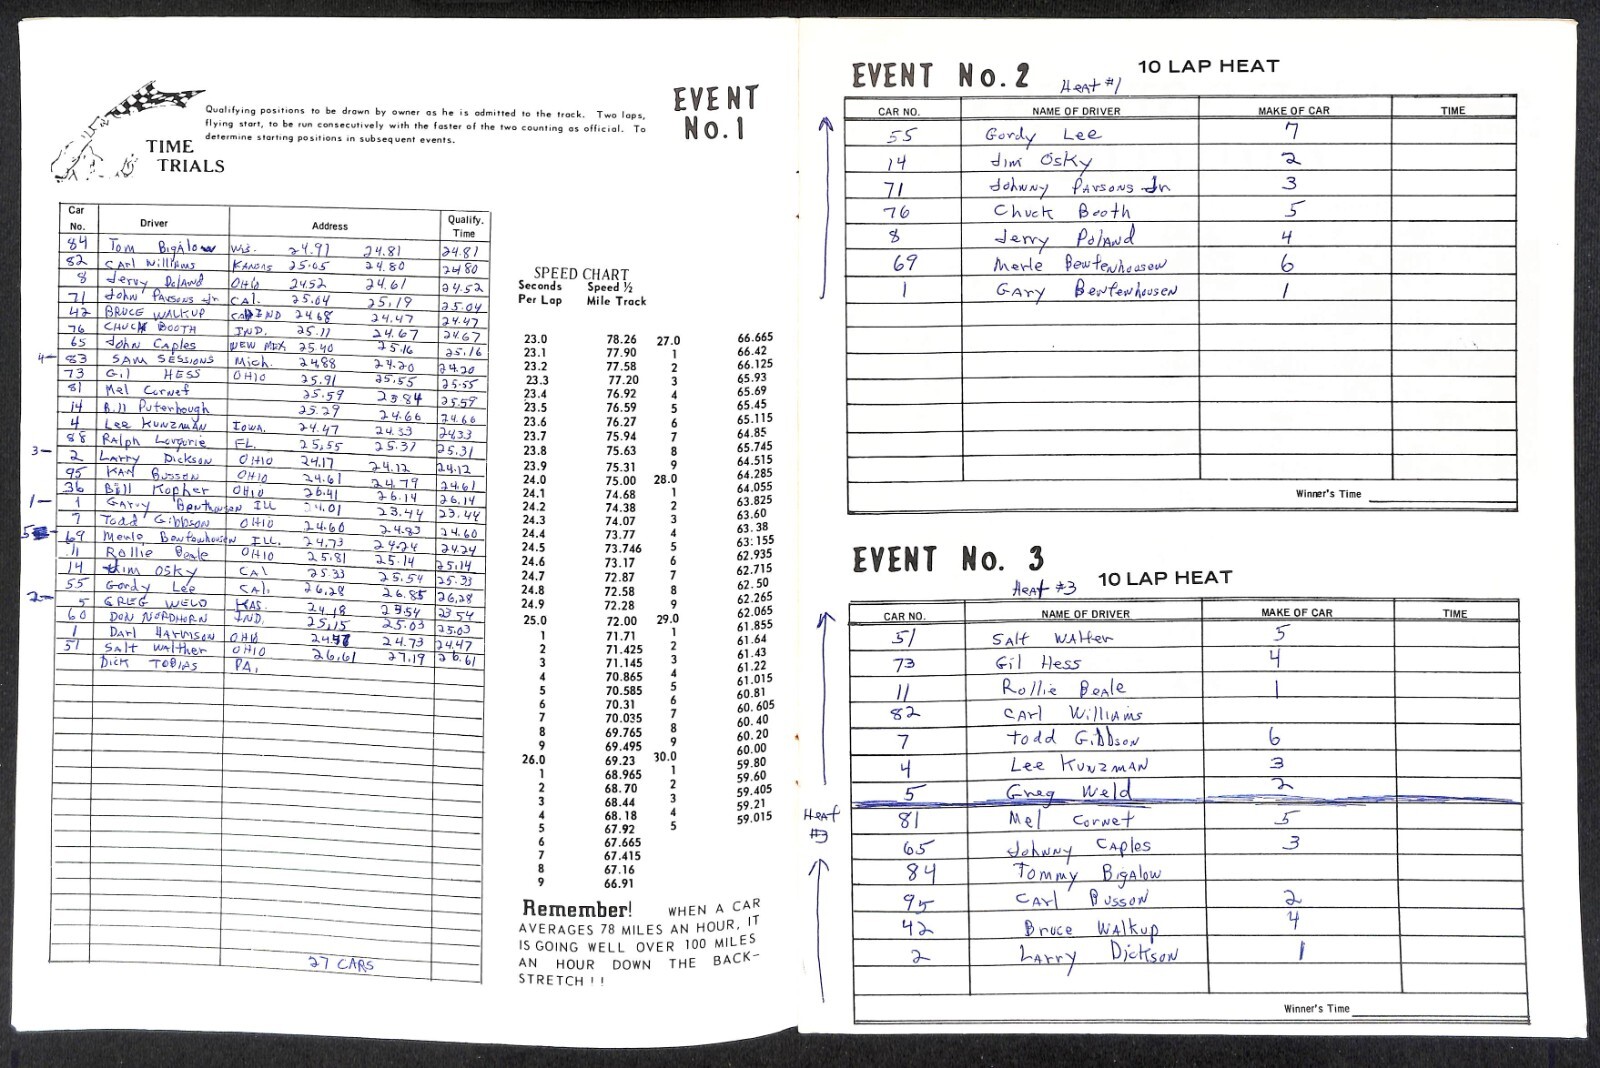 TIME
TRIALS
Qualifying positions to be drawn by owner as he is admitted to the track. Two laps,
flying start, to be run consecutively with the faster of the two counting as official. To
determine starting positions in subsequent events.
EVENT
No. 1
Car No. Driver Address Qualify. Time
84 Tom Bigalow Wis. 24.91 24.81 24.81
82 CArl Williams KANSAS 25.05 24.80 24.80
8 Jerry Poland OHIO 24.52 24.61 24.52
71 John PArsons Jr CAL. 25.04 25.19 25.04
42 BRUCE WALKUP IND 24.68 24.47 24.47
76 CHUCK BOOTH IND. 25.11 24.67 24.67
65 John CAples NEW MEX 25.40 25.16 25.16
4- 83 SAM SESSIONS Mich. 24.88 24.20 24.20
73 Gil HESS OHIO 25.91 25.55 25.55
81 Mel Cornet 25.59 25.84 25.59
14 Bill Puterbough 25.29 24.66 24.66
4 Lee KUNZMAN IOWA. 24.47 24.33 24.33
88 RAlph Liguorie FL. 25.55 25.37 25.31
3- 2 LArry Dickson OHIO 24.17 24.12 24.12
95 KAR Busson OHIO 24.61 24.79 24.61
36 Bill Kopher OHIO 26.41 26.14 26.14
1- 1 GArry Benthousen ILL 24.01 23.44 23.44
7 Todd Gibbson OHIO 24.60 24.83 24.60
5 69 Merle Bentenhousen ILL. 24.73 24.24 24.24
11 Rollie Beale OHIO 25.81 25.14 25.14
14 Jim OSKy CAl 25.33 25.54 25.33
55 Gordy Lee CAl. 26.28 26.85 26.28
2- 5 GREG WELD KAS. 24.18 23.54 23.54
60 DON NORDHORN IND. 25.15 25.03 25.03
1 Darl HARRISON OHIO 24.47 24.73 24.47
51 SAlt WAlther OHIO 26.61 27.19 26.61
DICK TOBIAS PA.
27 CARS
SPEED CHART
Seconds Speed ½
Per Lap Mile Track
23.0 78.26 27.0 66.665
23.1 77.90 1 66.42
23.2 77.58 2 66.125
23.3 77.20 3 65.93
23.4 76.92 4 65.69
23.5 76.59 5 65.45
23.6 76.27 6 65.115
23.7 75.94 7 64.85
23.8 75.63 8 65.745
23.9 75.31 9 64.515
24.0 75.00 28.0 64.285
24.1 74.68 1 64.055
24.2 74.38 2 63.825
24.3 74.07 3 63.60
24.4 73.77 4 63.38
24.5 73.746 5 63:155
24.6 73.17 6 62.935
24.7 72.87 7 62.715
24.8 72.58 8 62.50
24.9 72.28 9 62.265
25.0 72.00 29.0 62.065
1 71.71 1 61.855
2 71.425 2 61.64
3 71.145 3 61.43
4 70.865 4 61.22
5 70.585 5 61.015
6 70.31 6 60.81
7 70.035 7 60.605
8 69.765 8 60.40
9 69.495 9 60.20
26.0 69.23 30.0 60.00
1 68.965 1 59.80
2 68.70 2 59.60
3 68.44 3 59.405
4 68.18 4 59.21
5 67.92 5 59.015
6 67.665
7 67.415
8 67.16
9 66.91
Remember! WHEN A CAR
AVERAGES 78 MILES AN HOUR, IT
IS GOING WELL OVER 100 MILES
AN HOUR DOWN THE BACK-
STRETCH ! !
EVENT No. 2 HeAt #1 10 LAP HEAT
CAR NO. NAME OF DRIVER MAKE OF CAR TIME
55 Gordy Lee 7
14 Jim OSKy 2
71 Johnny PArsons Jr 3
76 Chuck Booth 5
8 Jerry PolAnd 4
69 Merle Bentenhousen 6
1 GAry Bentenhousen 1
Winner's Time
EVENT No. 3 HeAt #3 10 LAP HEAT
CAR NO. NAME OF DRIVER MAKE OF CAR TIME
51 SAlt WAlther 5
73 Gil Hess 4
11 Rollie Beale 1
82 CArl WilliAms
7 Todd Gibbson 6
4 Lee KUNZMAN 3
5 Greg Weld 2
HeAt #3
81 Mel Cornet 5
65 Johnny CAples 3
84 Tommy BigAlow
95 CArl Busson 2
42 Bruce WAlkup 4
2 LArry Dickson 1
Winner's Time